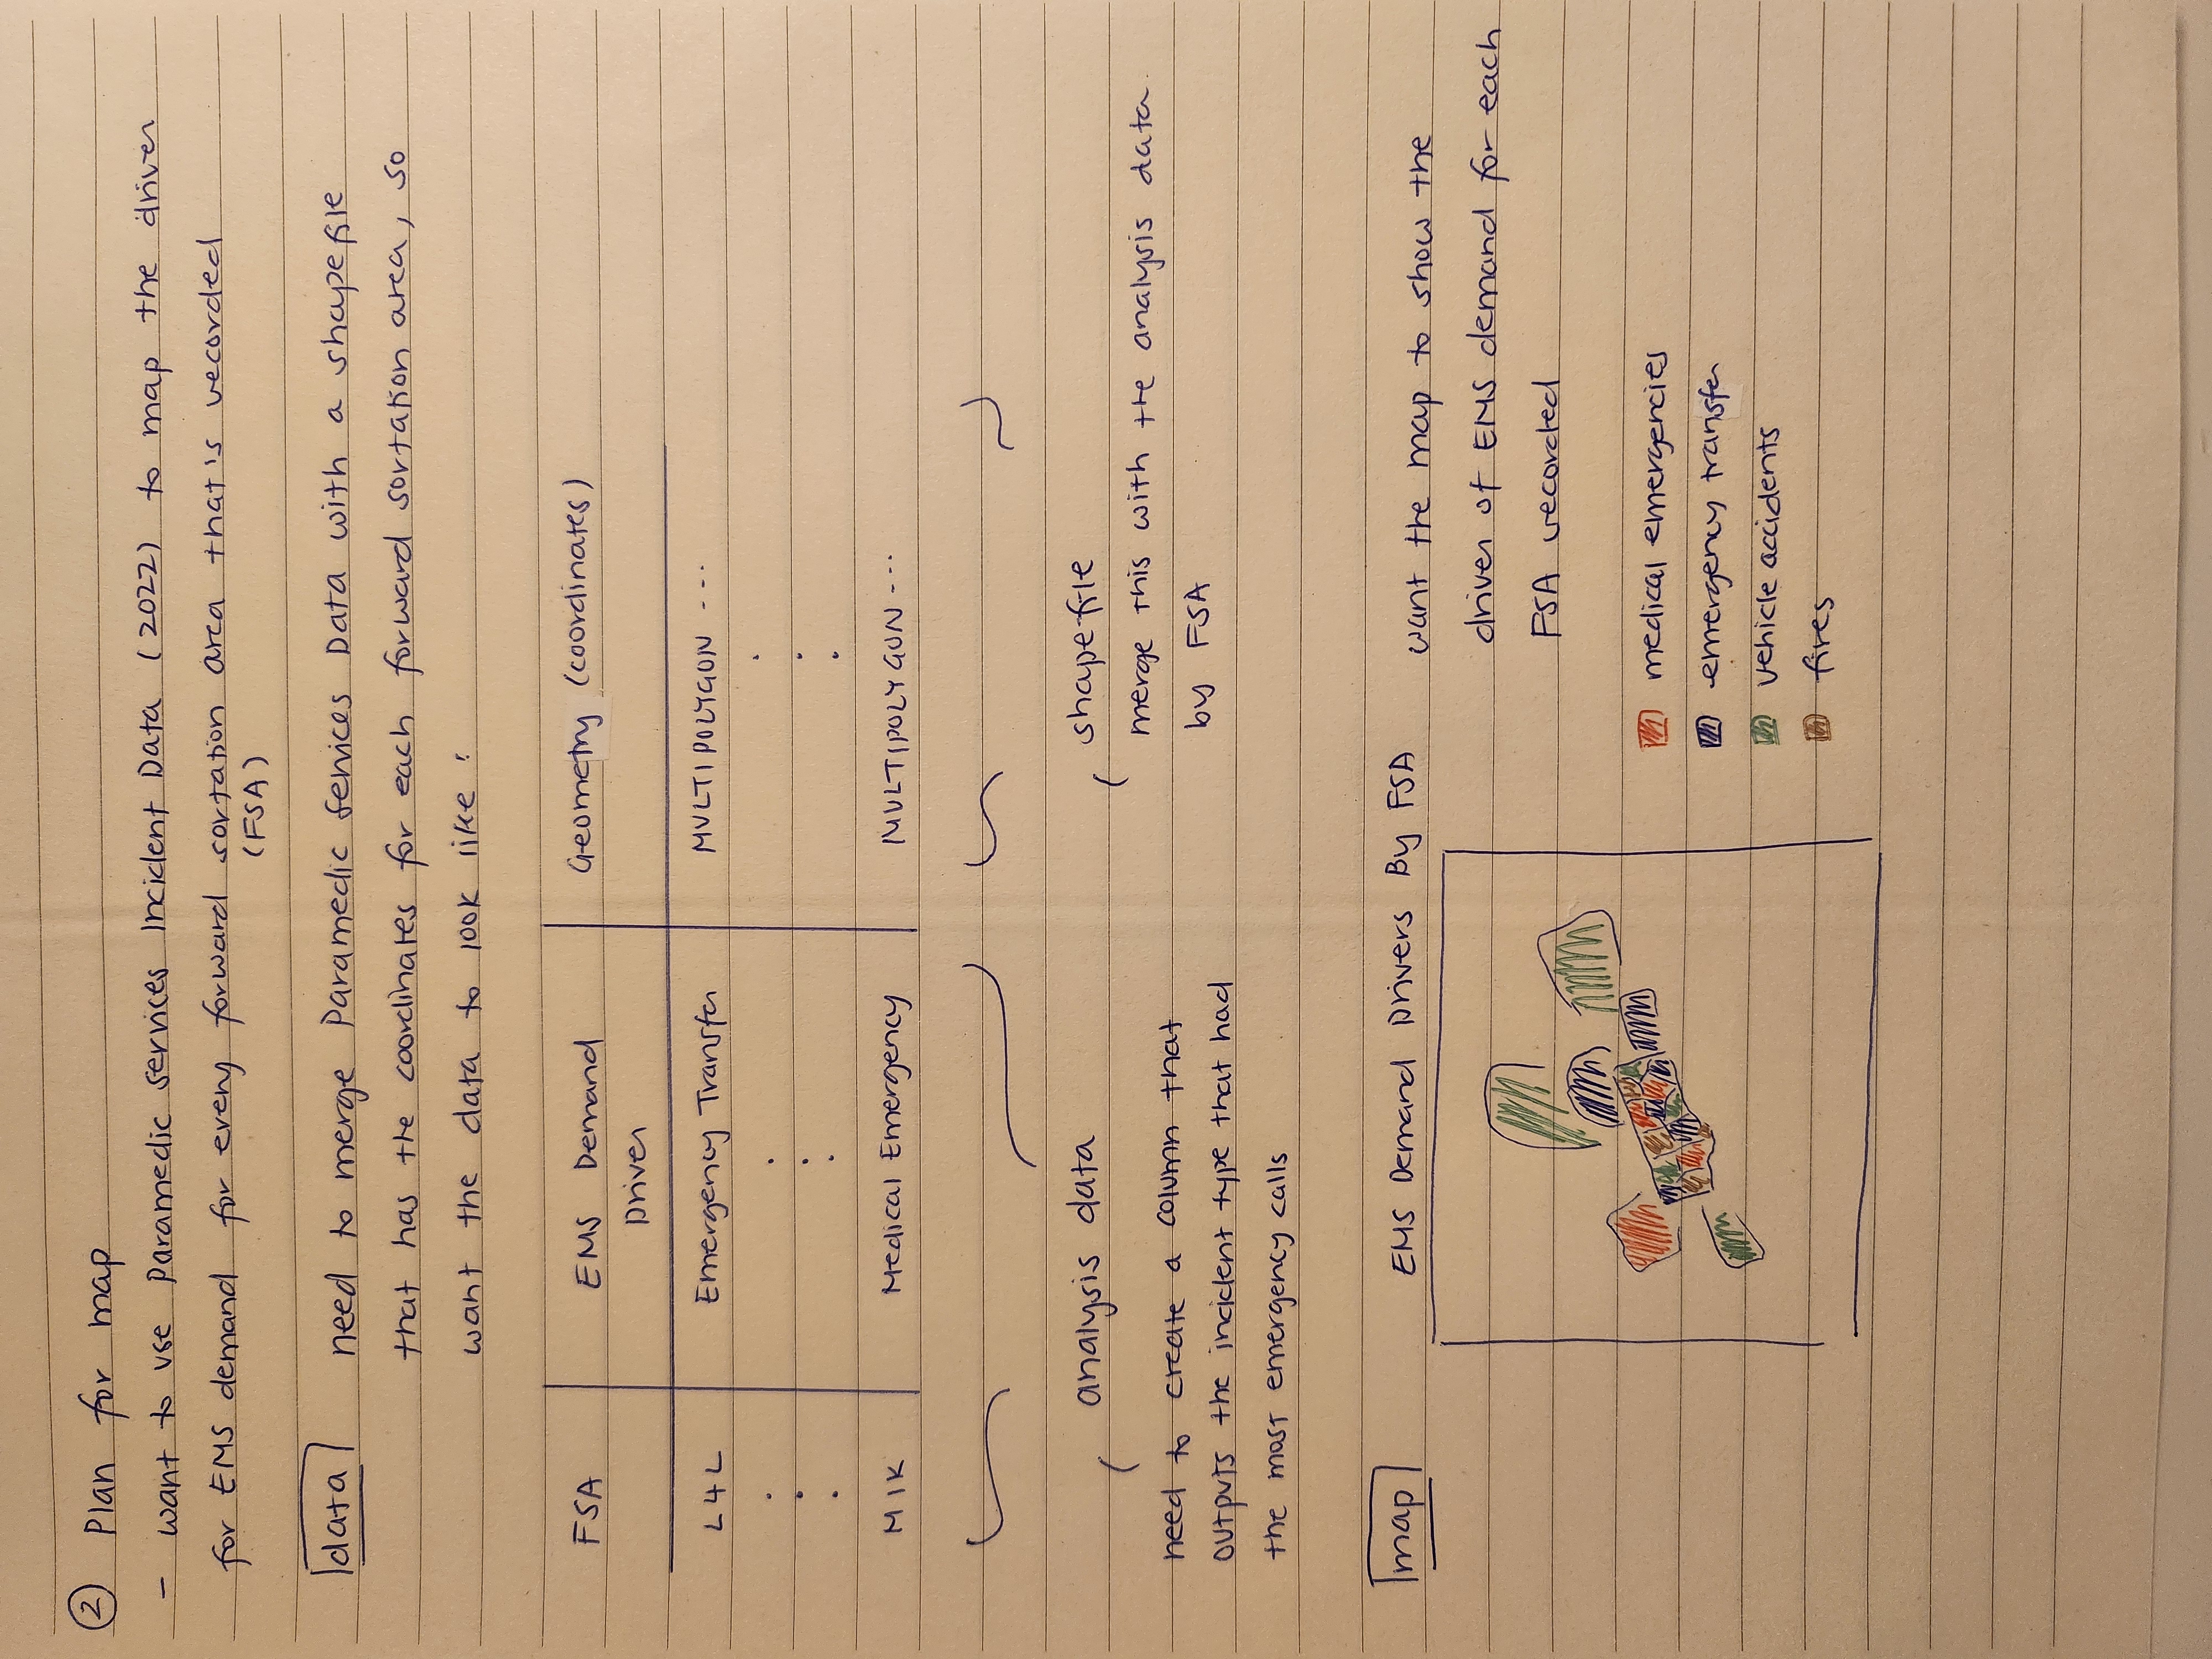 ② Plan for map
- want to use Paramedic Services Incident Data (2022) to map the driver
for EMS demand for every forward sortation area that's recorded
(FSA)
data need to merge Paramedic Services Data with a shapefile
that has the coordinates for each forward sortation area, so
want the data to look like:
FSA EMS Demand Geometry (coordinates)
Driver
L4L Emergency Transfer MULTIPOLYGON ---
M1K Medical Emergency MULTIPOLYGON ---
analysis data
need to create a column that
outputs the incident type that had
the most emergency calls
shapefile
merge this with the analysis data
by FSA
map EMS Demand Drivers By FSA
want the map to show the
driver of EMS demand for each
FSA recorded
medical emergencies
emergency transfer
vehicle accidents
fires